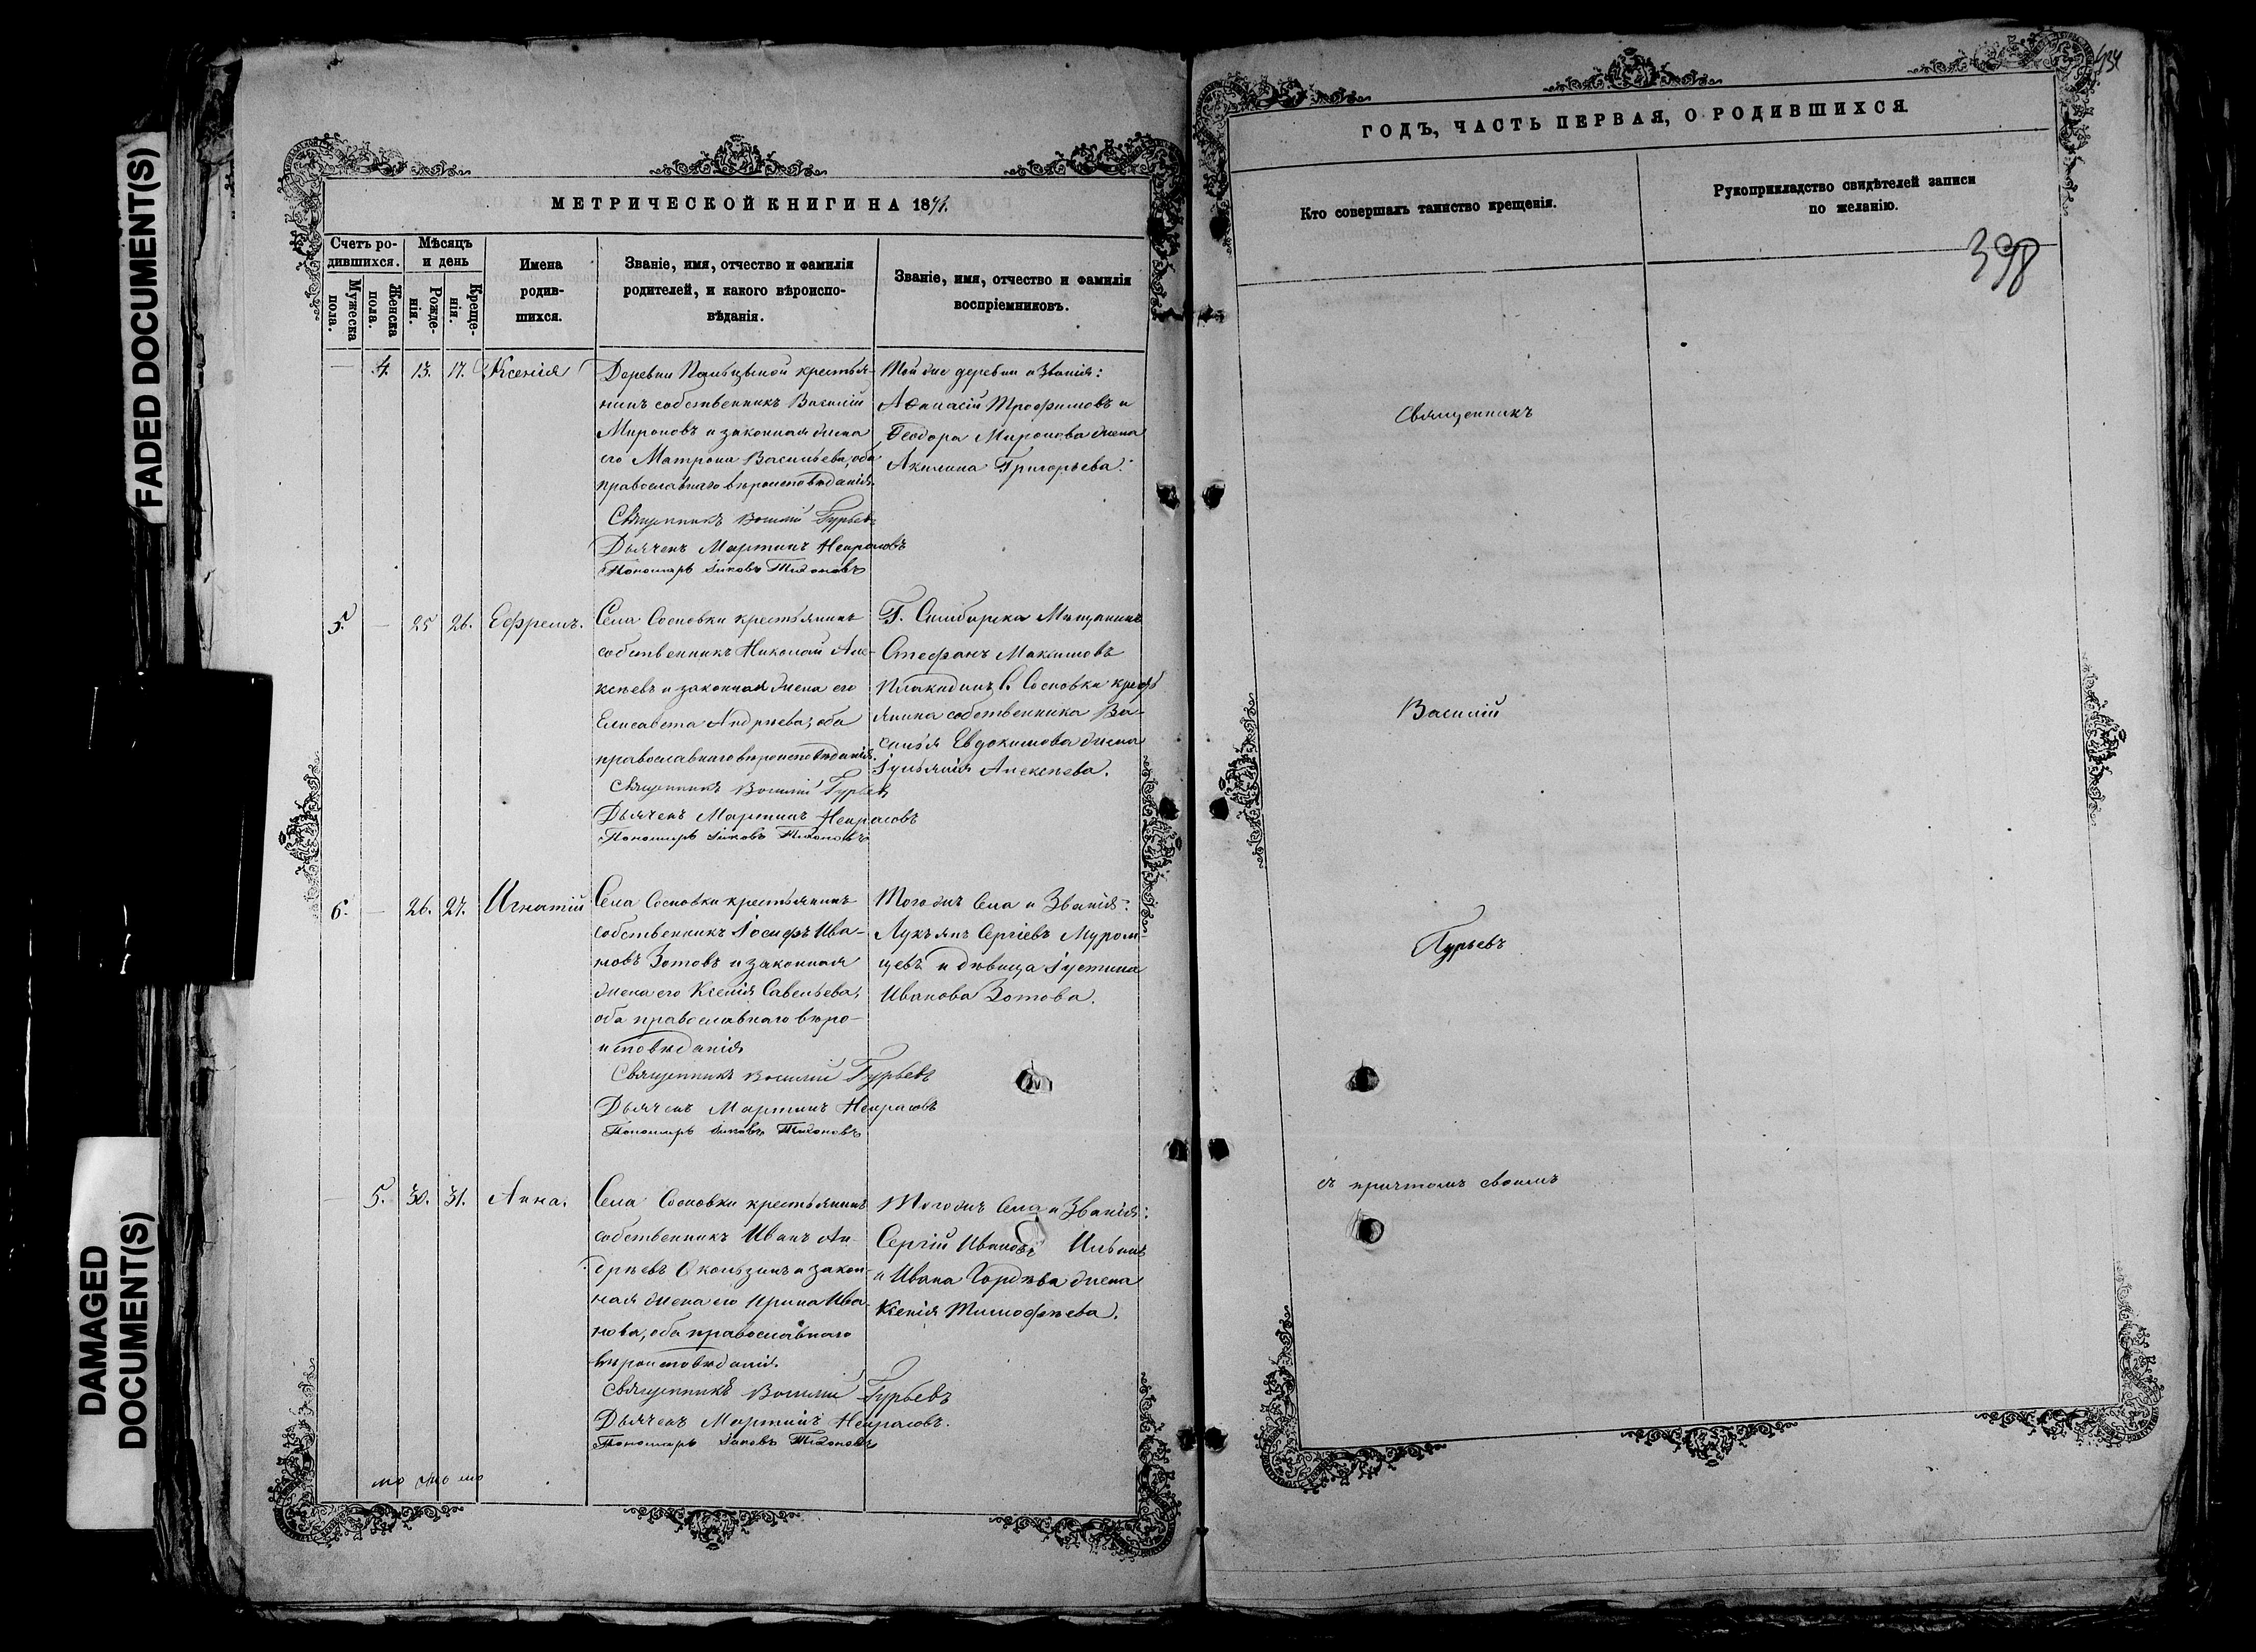 FADED DOCUMENT(S)
DAMAGED
DOCUMENT(S)
МЕТРИЧЕСКОЙ КНИГИ НА 1871.
Счетъ ро-
дившихся.
Мужеска
пола.
Женска
пола.
Мѣсяцъ
и день
Рожде-
нія.
Креще-
нія.
Имена
родив-
шихся.
Званіе, имя, отчество и фамилія
родителей, и какого вѣроиспо-
вѣданія.
Званіе, имя, отчество и фамилія
воспріемниковъ.
— 4. 13. 17. Ксенія
Деревни крестья-
нинъ собственникъ Василій
Мироновъ и законная жена
его Матрона Васильева, оба
православнаго вѣроисповѣданія.
Священникъ Василій Гурьевъ
Дьячекъ Мартинъ Некрасовъ
Пономарь Іаковъ Тихоновъ
Той же деревни и званія:
Аѳанасій Трофимовъ и
Ѳеодора Миронова жена
Акилина Григорьева.
5. — 25 26. Ефремъ.
Села Сосновки крестьянинъ
собственникъ Николай Але-
ксѣевъ и законная жена его
Елисавета Андрѣева, оба
православнаго вѣроисповѣданія.
Священникъ Василій Гурьевъ
Дьячекъ Мартинъ Некрасовъ
Пономарь Іаковъ Тихоновъ
Г. Симбирска Мѣщанинъ
Стефанъ Максимовъ
Плакидинъ С. Сосновки крест
янина собственника Ва-
силья Евдокимова жена
Іульянія Алексѣева.
6. — 26. 27. Игнатій
Села Сосновки крестьянинъ
собственникъ Іосифъ Ива-
новъ Зотовъ и законная
жена его Ксенія Савельева,
оба православнаго вѣро-
исповѣданія
Священникъ Василій Гурьевъ
Дьячекъ Мартинъ Некрасовъ
Пономарь Іаковъ Тихоновъ
Тогожъ Села и Званія:
Лукъянъ Сергіевъ Муром-
цевъ и дѣвица Іустина
Иванова Зотова.
— 5. 30. 31. Анна.
Села Сосновки крестьянинъ
собственникъ Иванъ Ан-
дрѣевъ Скользинъ и закон-
ная жена его Ирина Ива-
нова, оба православнаго
вѣроисповѣданія.
Священникъ Василій Гурьевъ
Дьячекъ Мартинъ Некрасовъ.
Пономарь Іаковъ Тихоновъ
Тогожъ Села и Званія:
Сергій Ивановъ Ильинъ
и Ивана Гордѣева жена
Ксенія Тимофѣева.
ГОДЪ, ЧАСТЬ ПЕРВАЯ, О РОДИВШИХСЯ.
Кто совершалъ таинство крещенія.
Рукоприкладство свидѣтелей записи
по желанію.
398
Священникъ
Василій
Гурьевъ
съ причтомъ своимъ